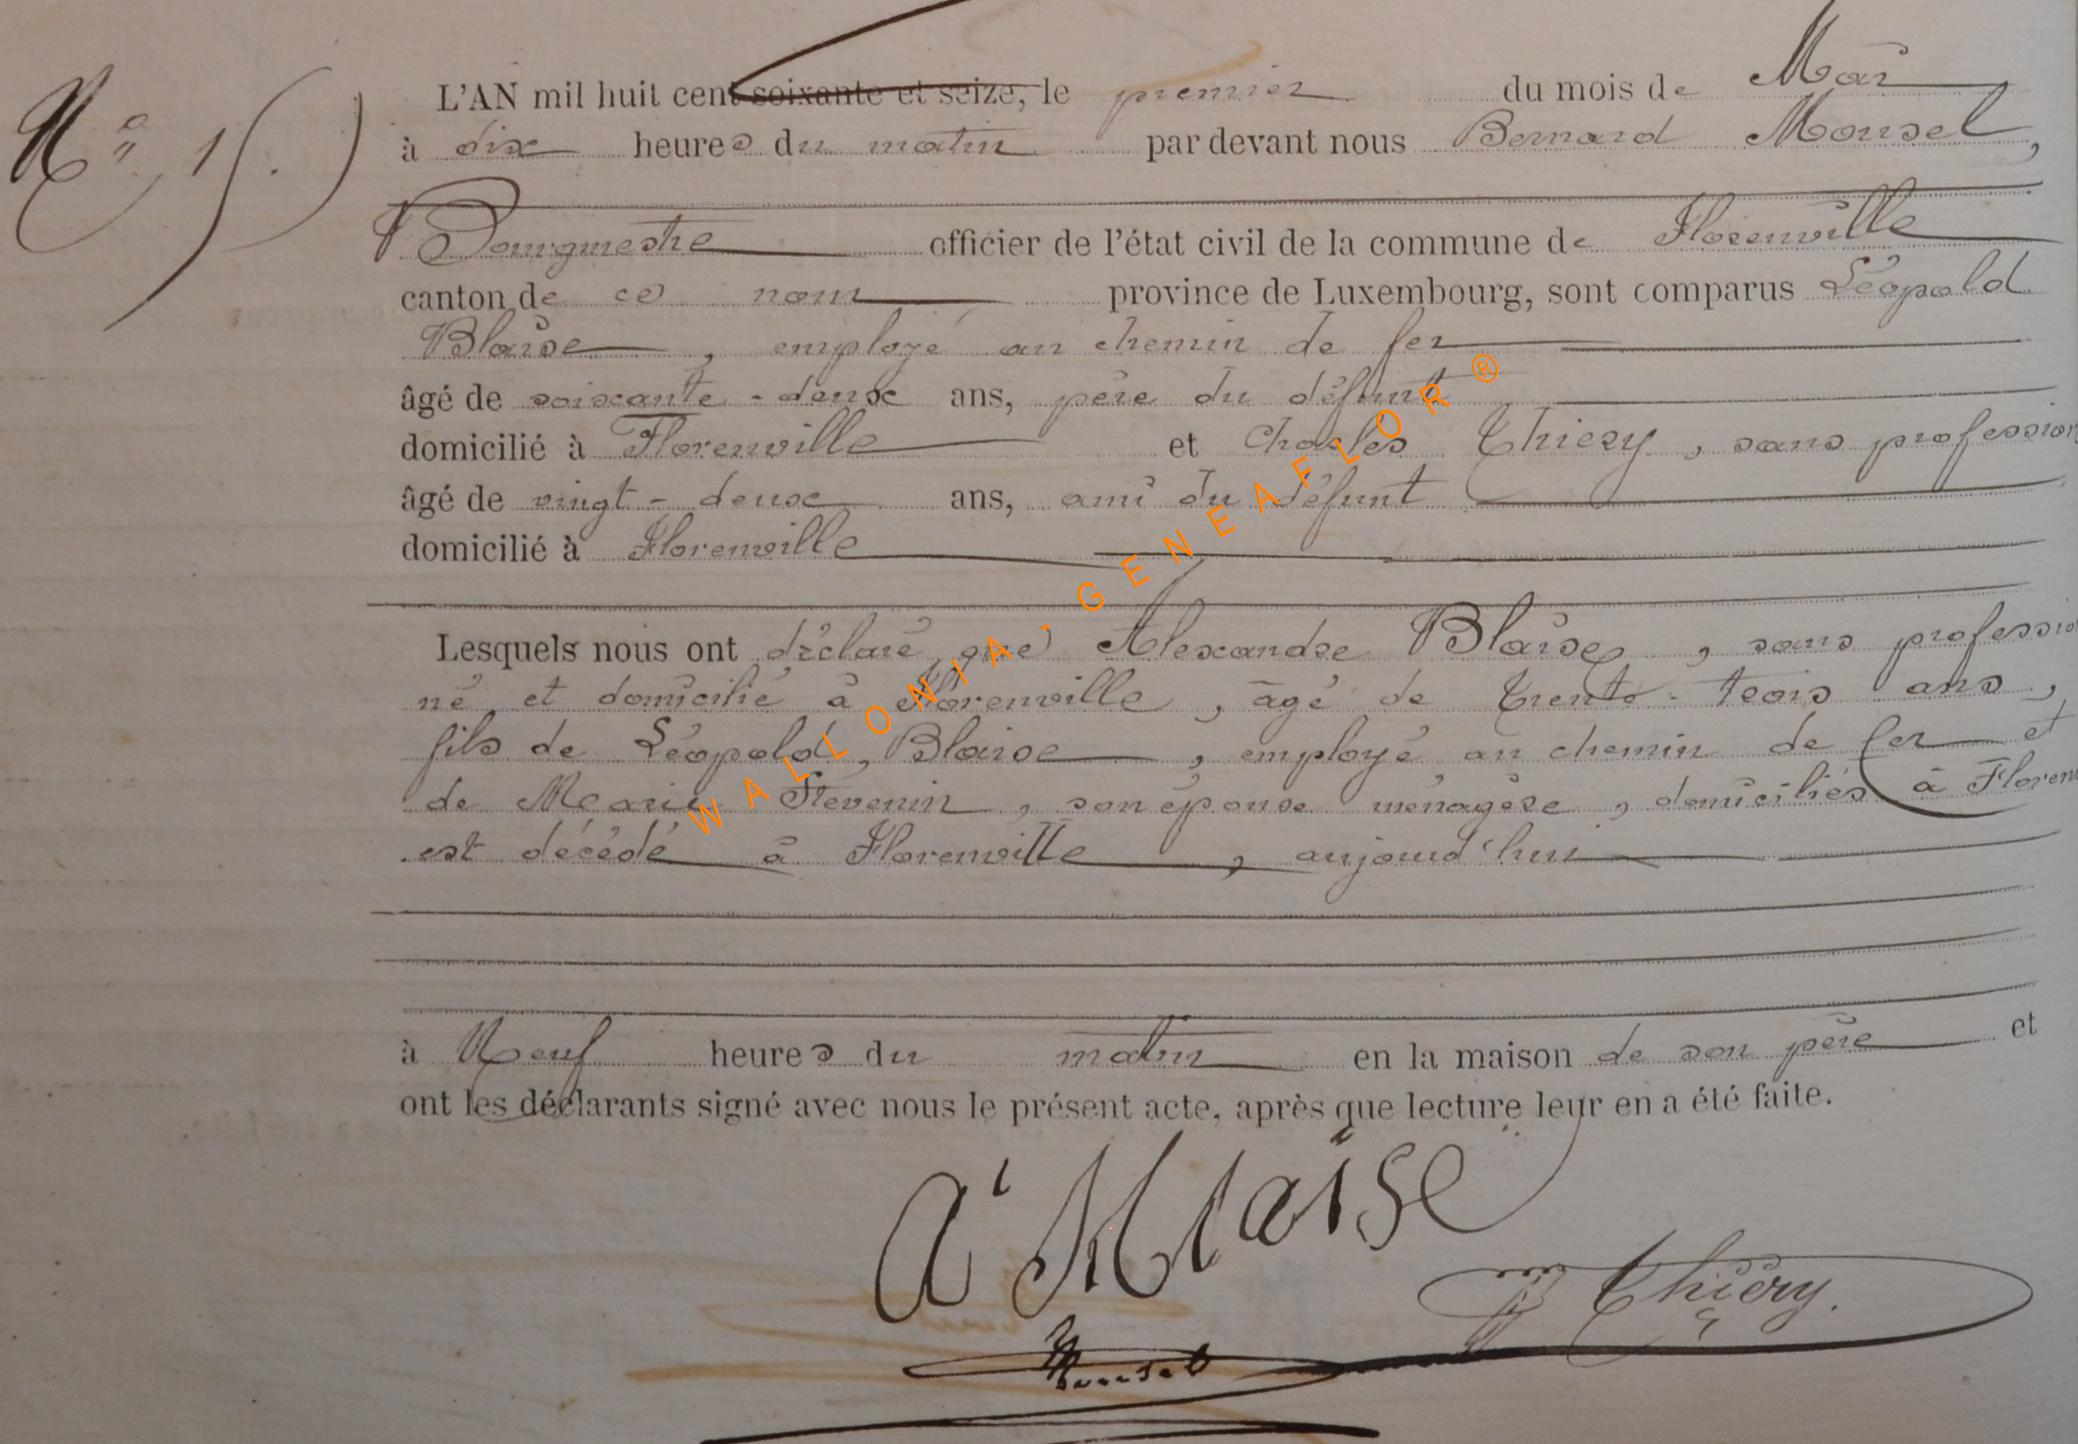 N° 15.
L'AN mil huit cent soixante et seize, le premier du mois de Mai
à dix heures du matin par devant nous Bernard Mousel,
Bourgmestre officier de l'état civil de la commune de Florenville
canton de ce nom province de Luxembourg, sont comparus Léopold
Blaise, employé au chemin de fer
âgé de soixante-deux ans, père du défunt
domicilié à Florenville et Charles Thiery, sans profession
âgé de vingt-deux ans, ami du défunt
domicilié à Florenville
Lesquels nous ont déclaré que Alexandre Blaise, sans professio
né et domicilié à Florenville, âgé de trente-trois ans,
fils de Léopold Blaise, employé au chemin de fer et
de Marie Fievenin, son épouse ménagère, domiciliés à Floren
est décédé à Florenville, aujourd'hui
à Neuf heures du matin en la maison de son père et
ont les déclarants signé avec nous le présent acte, après que lecture leur en a été faite.
Blaise
Thiery.
Mousel
WALLONIA-GENEAFLOR®